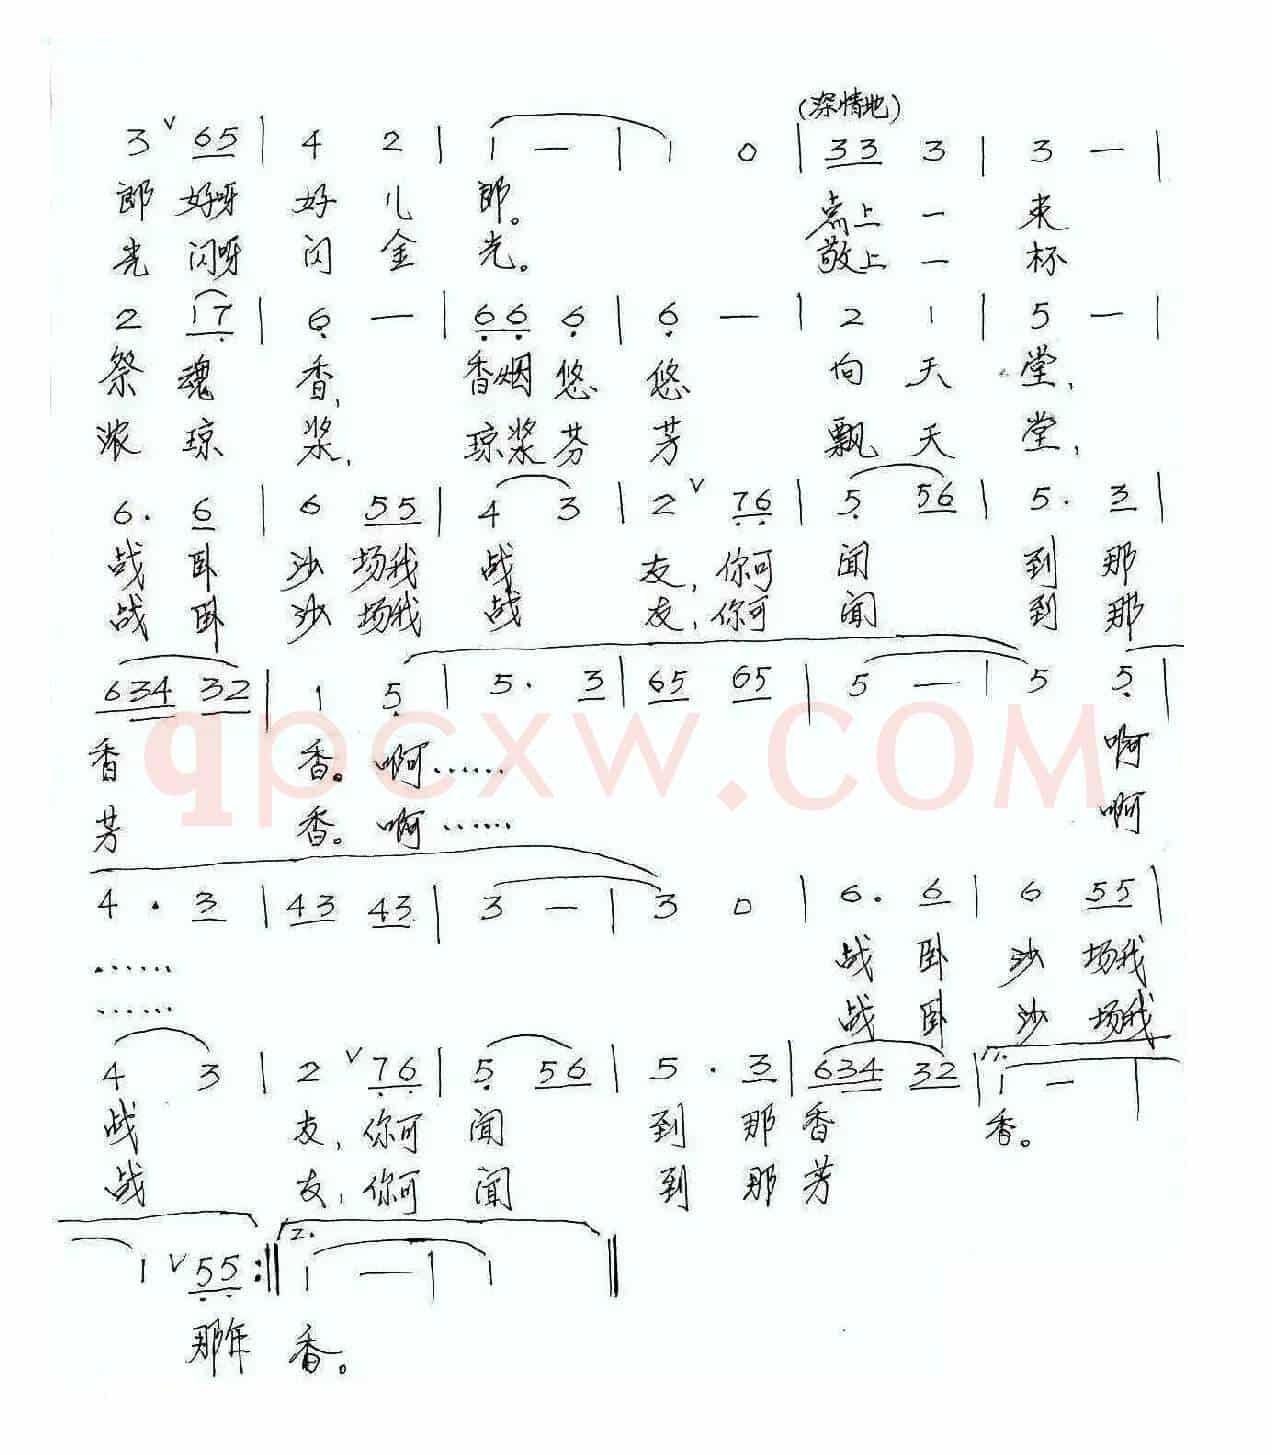 (深情地)
3 ∨ 65 | 4 2 | 1 — | 1 0 | 33 3 | 3 — |
郎 好呀 好 儿 郎。 点上 一 束
光 闪呀 闪 金 光。 敬上 一 杯
2 17 | 6 — | 66 6 | 6 — | 2 1 | 5 — |
祭 魂 香, 香烟 悠 悠 向 天 堂,
浓 琼 浆, 琼浆 芬 芳 飘 天 堂,
6. 6 | 6 55 | 4 3 | 2 ∨ 76 | 5 56 | 5. 3 |
战 卧 沙 场我 战 友, 你可 闻 到 那
战 卧 沙 场我 战 友, 你可 闻 到 那
634 32 | 1 5 | 5. 3 | 65 65 | 5 — | 5 5 |
香 香。 啊…… 啊
芳 香。 啊…… 啊
qpcxw.COM
4. 3 | 43 43 | 3 — | 3 0 | 6. 6 | 6 55 |
…… 战 卧 沙 场我
…… 战 卧 沙 场我
4 3 | 2 ∨ 76 | 5 56 | 5. 3 | 634 32 | 1. 1 — |
战 友, 你可 闻 到 那 香 香。
战 友, 你可 闻 到 那 芳
1 ∨ 55 :‖ 2. 1 — | 1 ‖
那年 香。